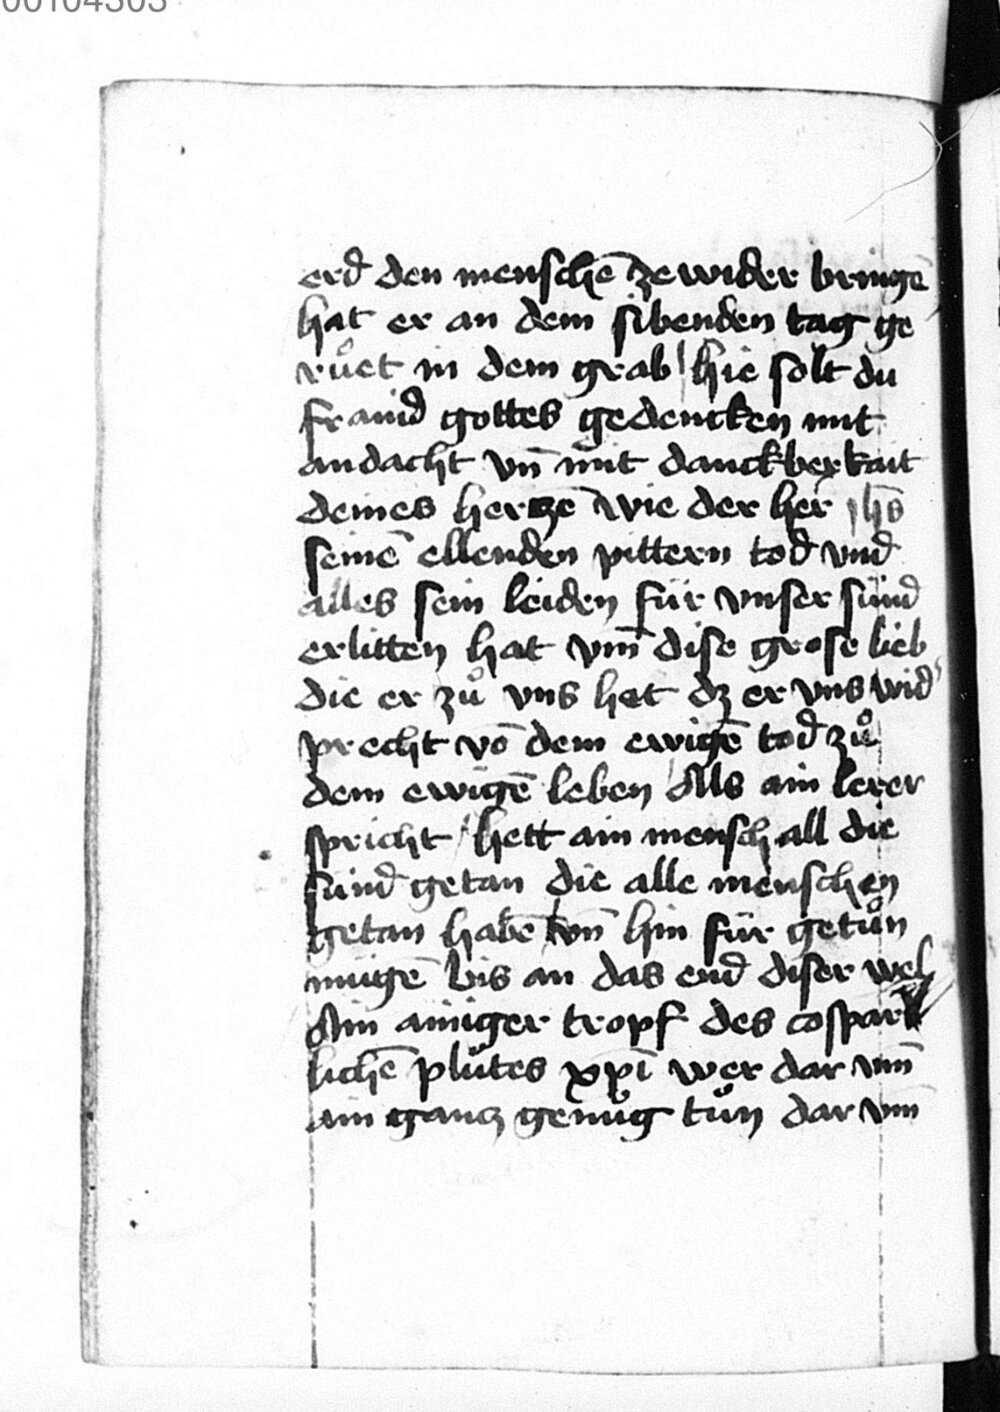 00104303
erd den menschē ze wider bringē
hat er an dem sibenden tag ge
růet in dem grab hie solt du
fraind gottes gedencken mit
andacht vn̄ mit danckberkait
deines hertzē wie der her ihs̄
seinē ellenden pittern tod vnd
alles sein leiden für vnser sünd
erlitten hat vm̄ dise grose lieb
die er zů vns het dz er vns wid
precht vō dem ewigē tod zů
dem ewigē leben Als ain lerer
spricht hett ain mensch all die
sünd getan die alle menschen
getan habē vn̄ hin für getůn
mügē bis an das end diser welt
Ain ainiger tropf des cospar
lichē plůtes xp̄i wer dar vm̄
ain gancz genůg tůn dar vm̄